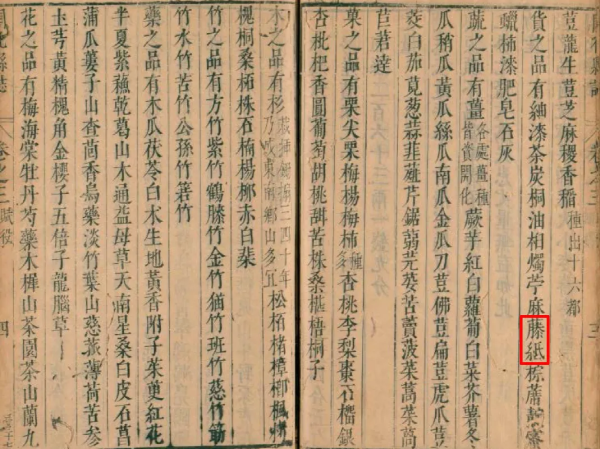 荳龍生荳芝麻稷香稻種出十六都
貨之品有紬漆茶炭桐油相燭苧麻藤紙棕蓆
蠟柿漆肥皂石灰
蔬之品有薑蕨芋紅白蘿蔔白菜芥薯冬
瓜稍瓜黃瓜絲瓜南瓜金瓜刀荳佛荳扁荳虎瓜荳
茭白茄莧葱蒜韭薤芹鋸蒻芫荽苦蕒菠菜萵菜萵
苣莙薘
菓之品有栗尖栗梅楊梅柿杏桃李梨棗石榴銀
杏枇杷香圓葡萄胡桃甜苦櫧桑椹梧桐子
木之品有杉松栢楮樟櫟楓
槐桐桑柿株石楠楊柳赤白棐
竹之品有方竹紫竹鶴膝竹金竹猫竹班竹慈竹筯
竹水竹苦竹公孫竹箬竹
藥之品有木瓜茯苓白术生地黃香附子茱萸紅花
半夏紫蘇乾葛山木通益母草天南星桑白皮石菖
蒲瓜蔞子山查茴香烏藥淡竹葉山慈菰薄荷苦參
土芎黃精槐角金櫻子五倍子龍腦草
花之品有梅海棠牡丹芍藥木樨山茶園茶山蘭九
卷之三
賦役
四